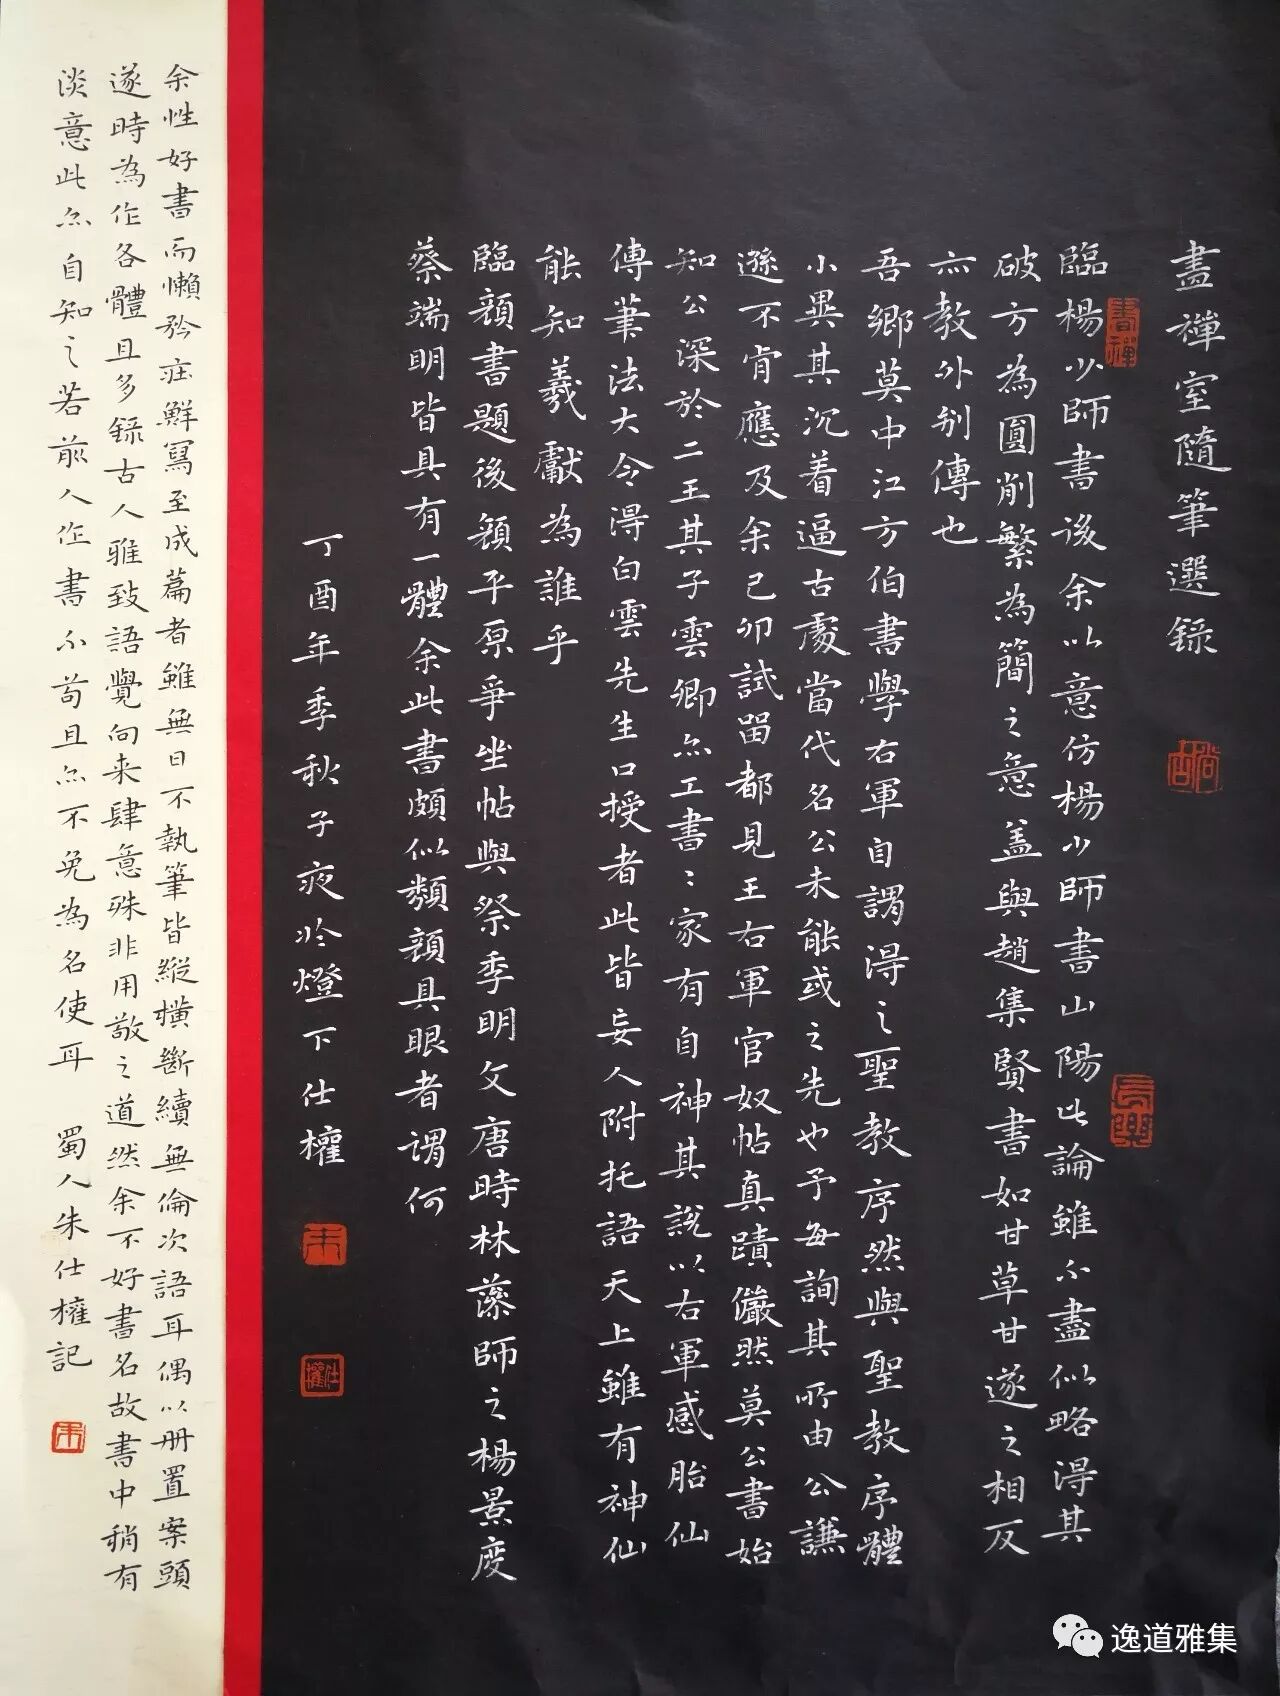 畫禪室隨筆選錄
臨楊少師書後余以意仿楊少師書山陽此論雖不盡似略得其
破方為圓削繁為簡之意盖與趙集賢書如甘草甘遂之相反
亦教外別傳也
吾鄉莫中江方伯書學右軍自謂得之聖教序然與聖教序體
小異其沉着逼古處當代名公未能或之先也予每詢其所由公謙
遜不肯應及余己卯試留都見王右軍官奴帖真蹟儼然莫公書始
知公深於二王其子雲卿亦工書﹦家有自神其說以右軍感胎仙
傳筆法大令得白雲先生口授者此皆妄人附托語天上雖有神仙
能知羲獻為誰乎
臨顏書題後顏平原爭坐帖與祭季明文唐時林藻師之楊景度
蔡端明皆具有一體余此書頗似類顏具眼者謂何
丁酉年季秋子夜於燈下仕權
朱
仕權
余性好書而懶矜莊鮮寫至成篇者雖無日不執筆皆縱橫斷續無倫次語耳偶以冊置案頭
遂時為作各體且多錄古人雅致語覺向来肆意殊非用敬之道然余不好書名故書中稍有
淡意此亦自知之若前人作書不苟且亦不免為名使耳 蜀人朱仕權記
朱
逸道雅集